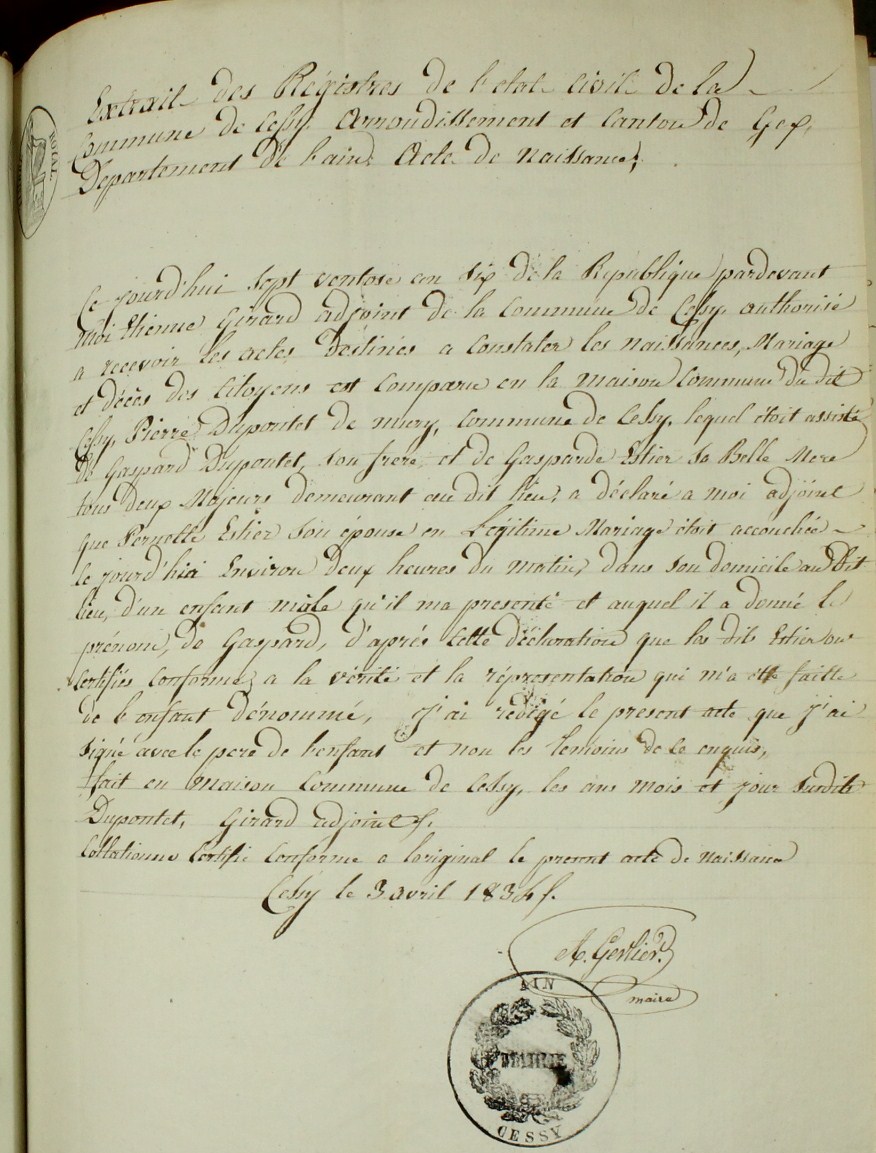 Extrait des Régistres de l'etat civil de la
Commune de Cessy Arrondissement et Canton de Gex,
Département de l'ain, Acte de Naissance,
ROYAL
Ce jourd'hui sept ventose an six de la République pardevant
moi Etienne Girard adjoint de la Commune de Cessy, authorisé
a recevoir les actes destinés a Constater les naissances, Mariage
et décès des Citoyens est Comparu en la maison Commune du dit
Cessy, Pierre Dupontet de mury, Commune de Cessy, lequel étoit assisté
de Gaspard Dupontet, son frere, et de Gasparde Estier sa Belle Mere
tous deux Majeurs demeurant au dit lieu, a déclaré a moi adjoint
que Pernette Estier son épouse en Légitime Mariage étoit accouchée
le jourd'hui Environ Deux heures du matin, dans son domicile au Dit
lieu, d'un enfant mâle qu'il ma presenté et auquel il a donné le
prénom, de Gaspard, d'après cette déclaration que les dits Estier ont
Certifiés Conforme a la vérité et la répresentation qui m'a été faitte
de l'enfant dénommé, j'ai redigé le present acte que j'ai
signé avec le pere de l'enfant et non les temoins de ce enquis,
fait en Maison Commune de Cessy, les ans mois et jour susdits
Dupontet, Girard adjoint
Collationne Certifié Conforme a l'original le present acte de Naissance
Cessy le 3 avril 1834
A. Gerlier
maire
AIN
MAIRIE
CESSY